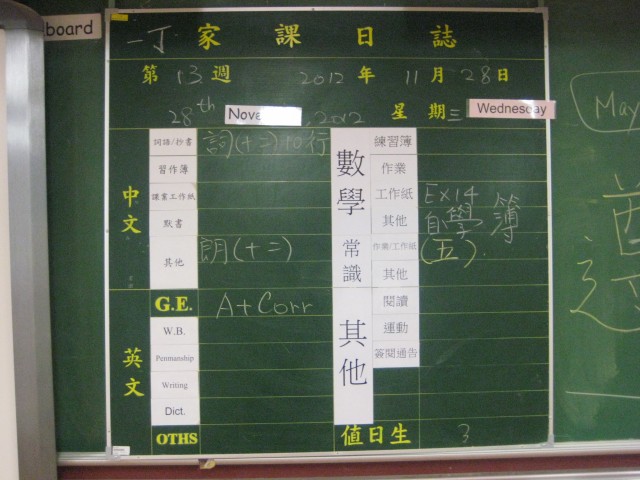 board
一丁 家課日誌
第 13 週 2012 年 11 月 28 日
28th Nove 2012 星期三 Wednesday
May
中文
詞語/抄書 詞(十二)10行
習作簿
課業工作紙
默書
其他 朗(十二)
英文
G.E. A+Corr
W.B.
Penmanship
Writing
Dict.
OTHS
數學
練習簿
作業
工作紙 Ex14
其他 自學簿
常識
作業/工作紙 (五)
其他
其他
閱讀
運動
簽閱通告
值日生 3